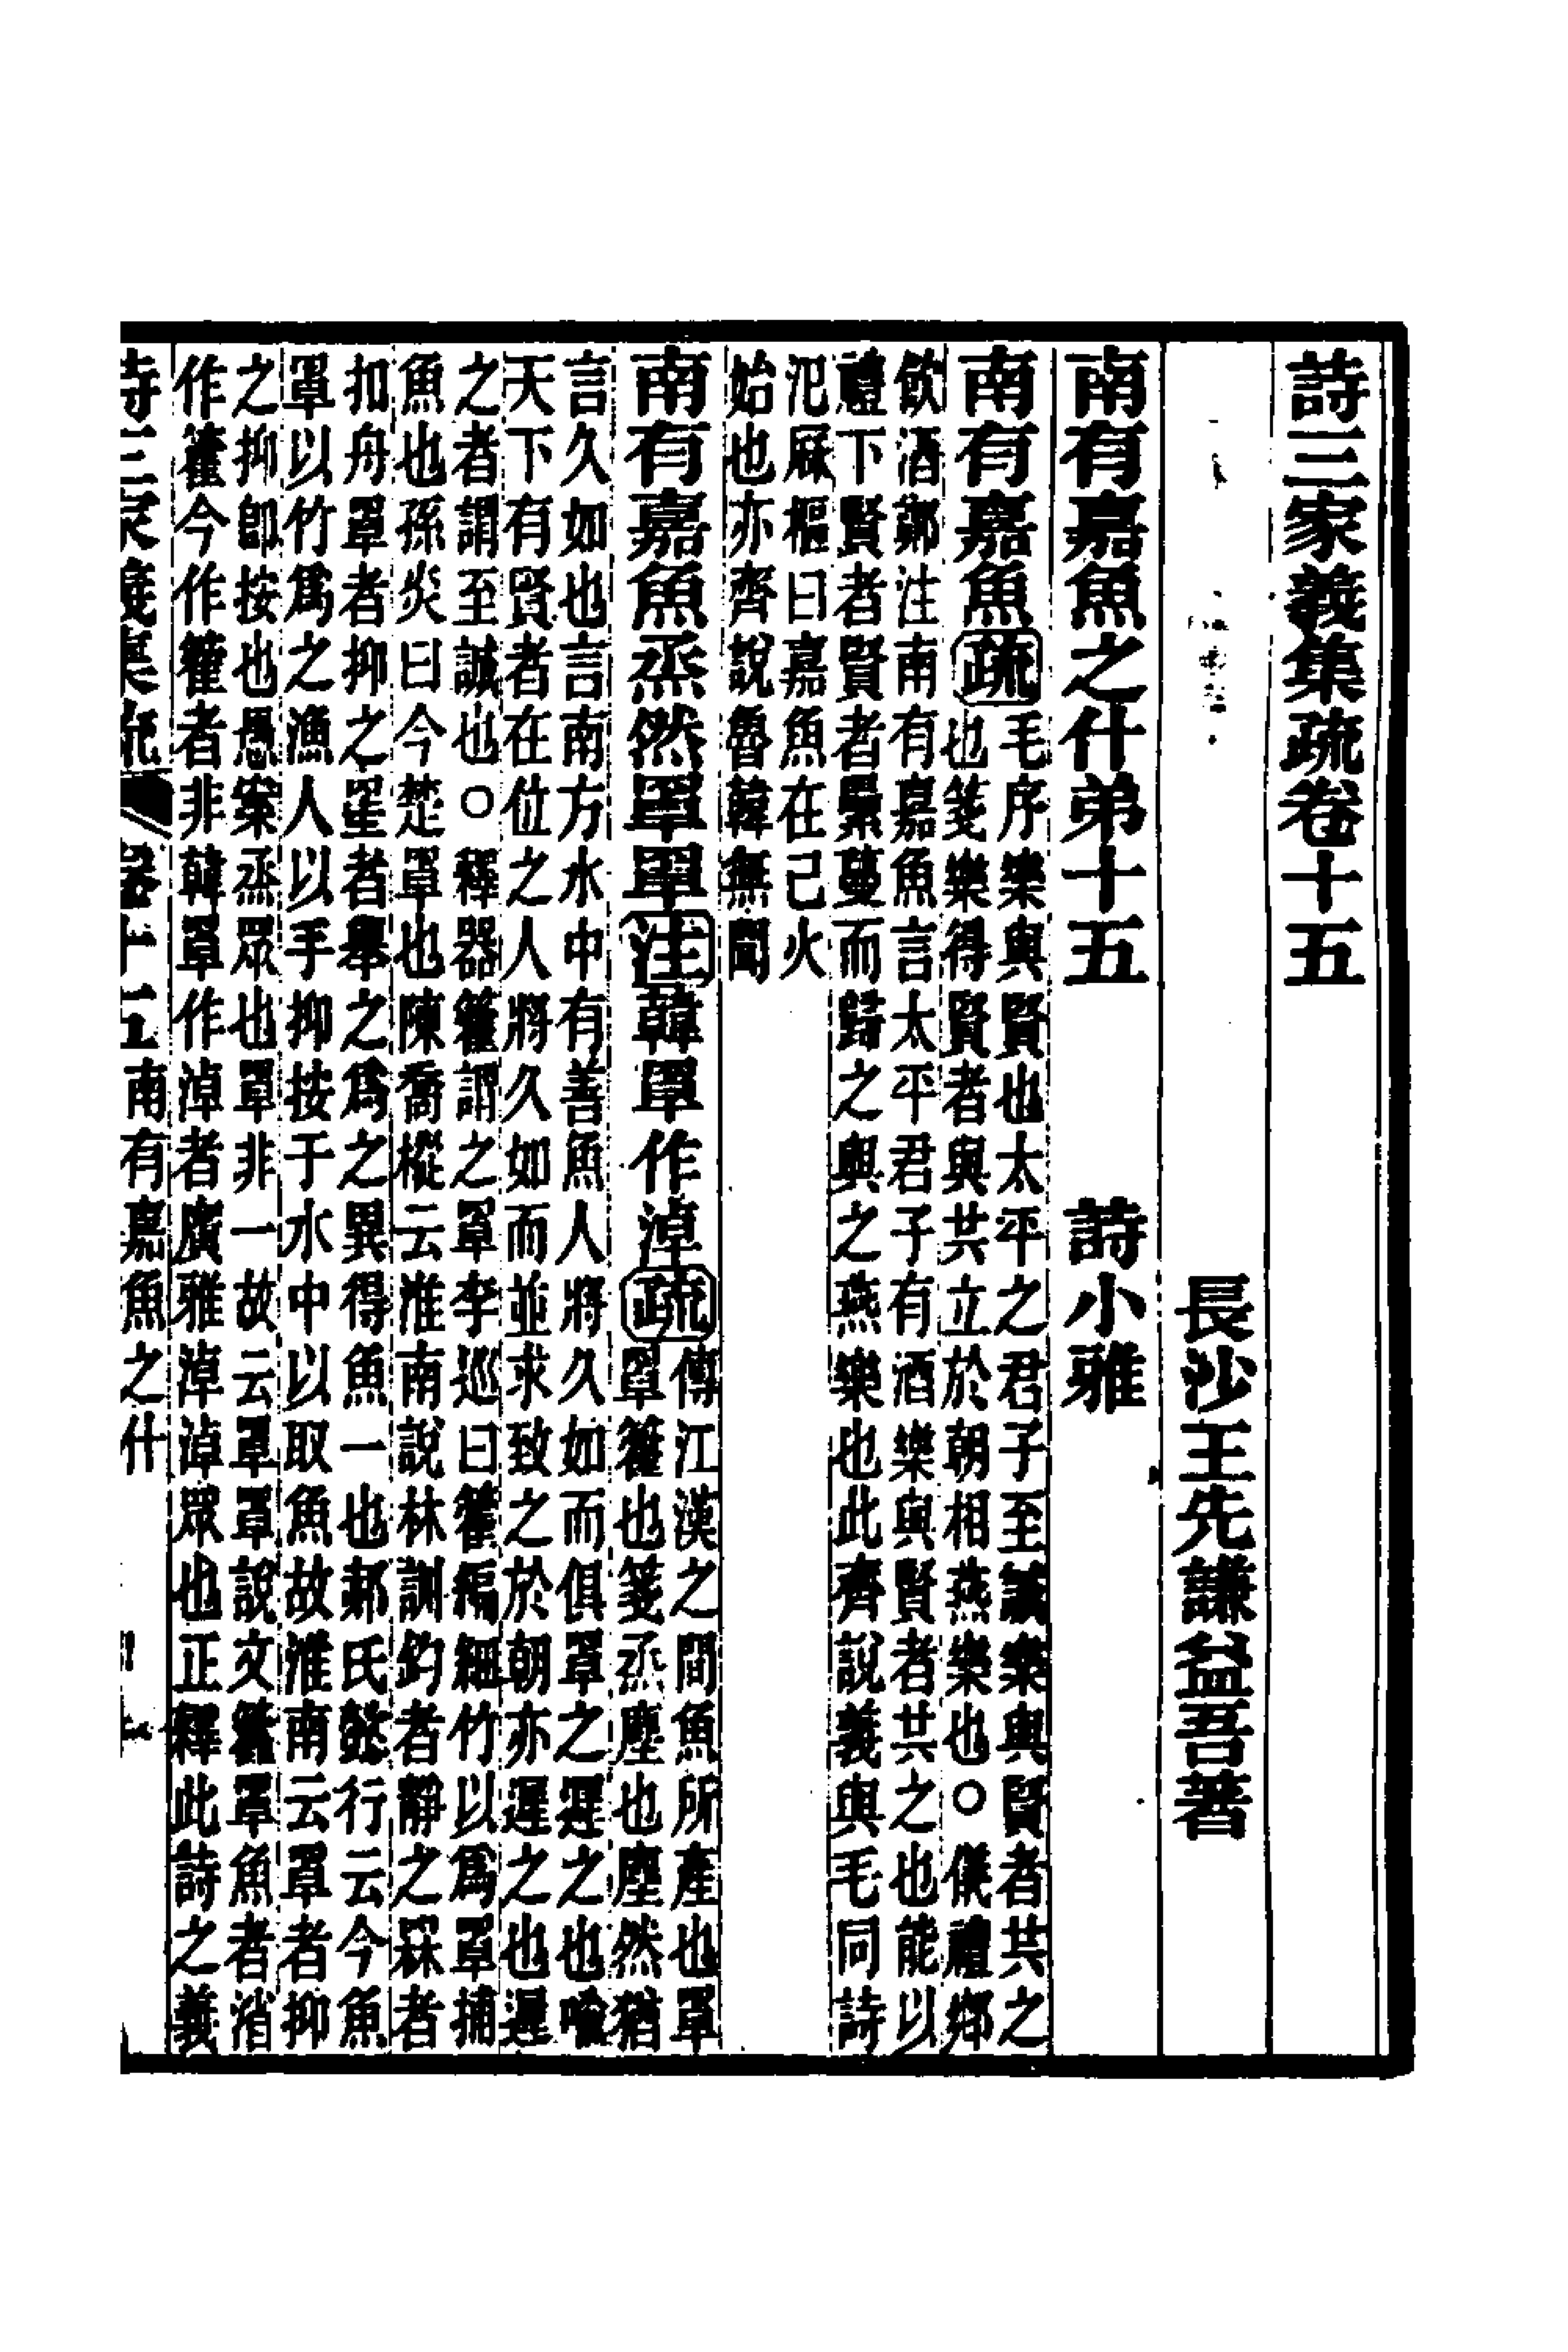 詩三家義集疏卷十五
長沙王先謙益吾著
南有嘉魚之什弟十五 詩小雅
南有嘉魚疏毛序樂與賢也太平之君子至誠樂與賢者共之
也箋樂得賢者與共立於朝相燕樂也○儀禮鄉
飲酒鄭注南有嘉魚言太平君子有酒樂與賢者共之也能以
禮下賢者賢者纍蔓而歸之與之燕樂也此齊說義與毛同詩
氾厤樞曰嘉魚在己火
始也亦齊說魯韓無聞
南有嘉魚烝然罩罩注韓罩作淖疏傳江漢之間魚所產也罩
罩籗也箋烝塵也塵然猶
言久如也言南方水中有善魚人將久如而俱罩之遲之也喻
天下有賢者在位之人將久如而並求致之於朝亦遲之也遲
之者謂至誠也○釋器籗謂之罩李巡曰籗編細竹以爲罩捕
魚也孫炎曰今楚罩也陳喬樅云淮南說林訓釣者靜之罧者
扣舟罩者抑之罣者舉之爲之異得魚一也郝氏懿行云今魚
罩以竹爲之漁人以手抑按于水中以取魚故淮南云罩者抑
之抑卽按也愚案烝眾也罩非一故云罩罩說文籱罩魚者消
作籗今作籗者非韓罩作淖者廣雅淖淖眾也正釋此詩之義
詩三家義集疏 卷十五南有嘉魚之什